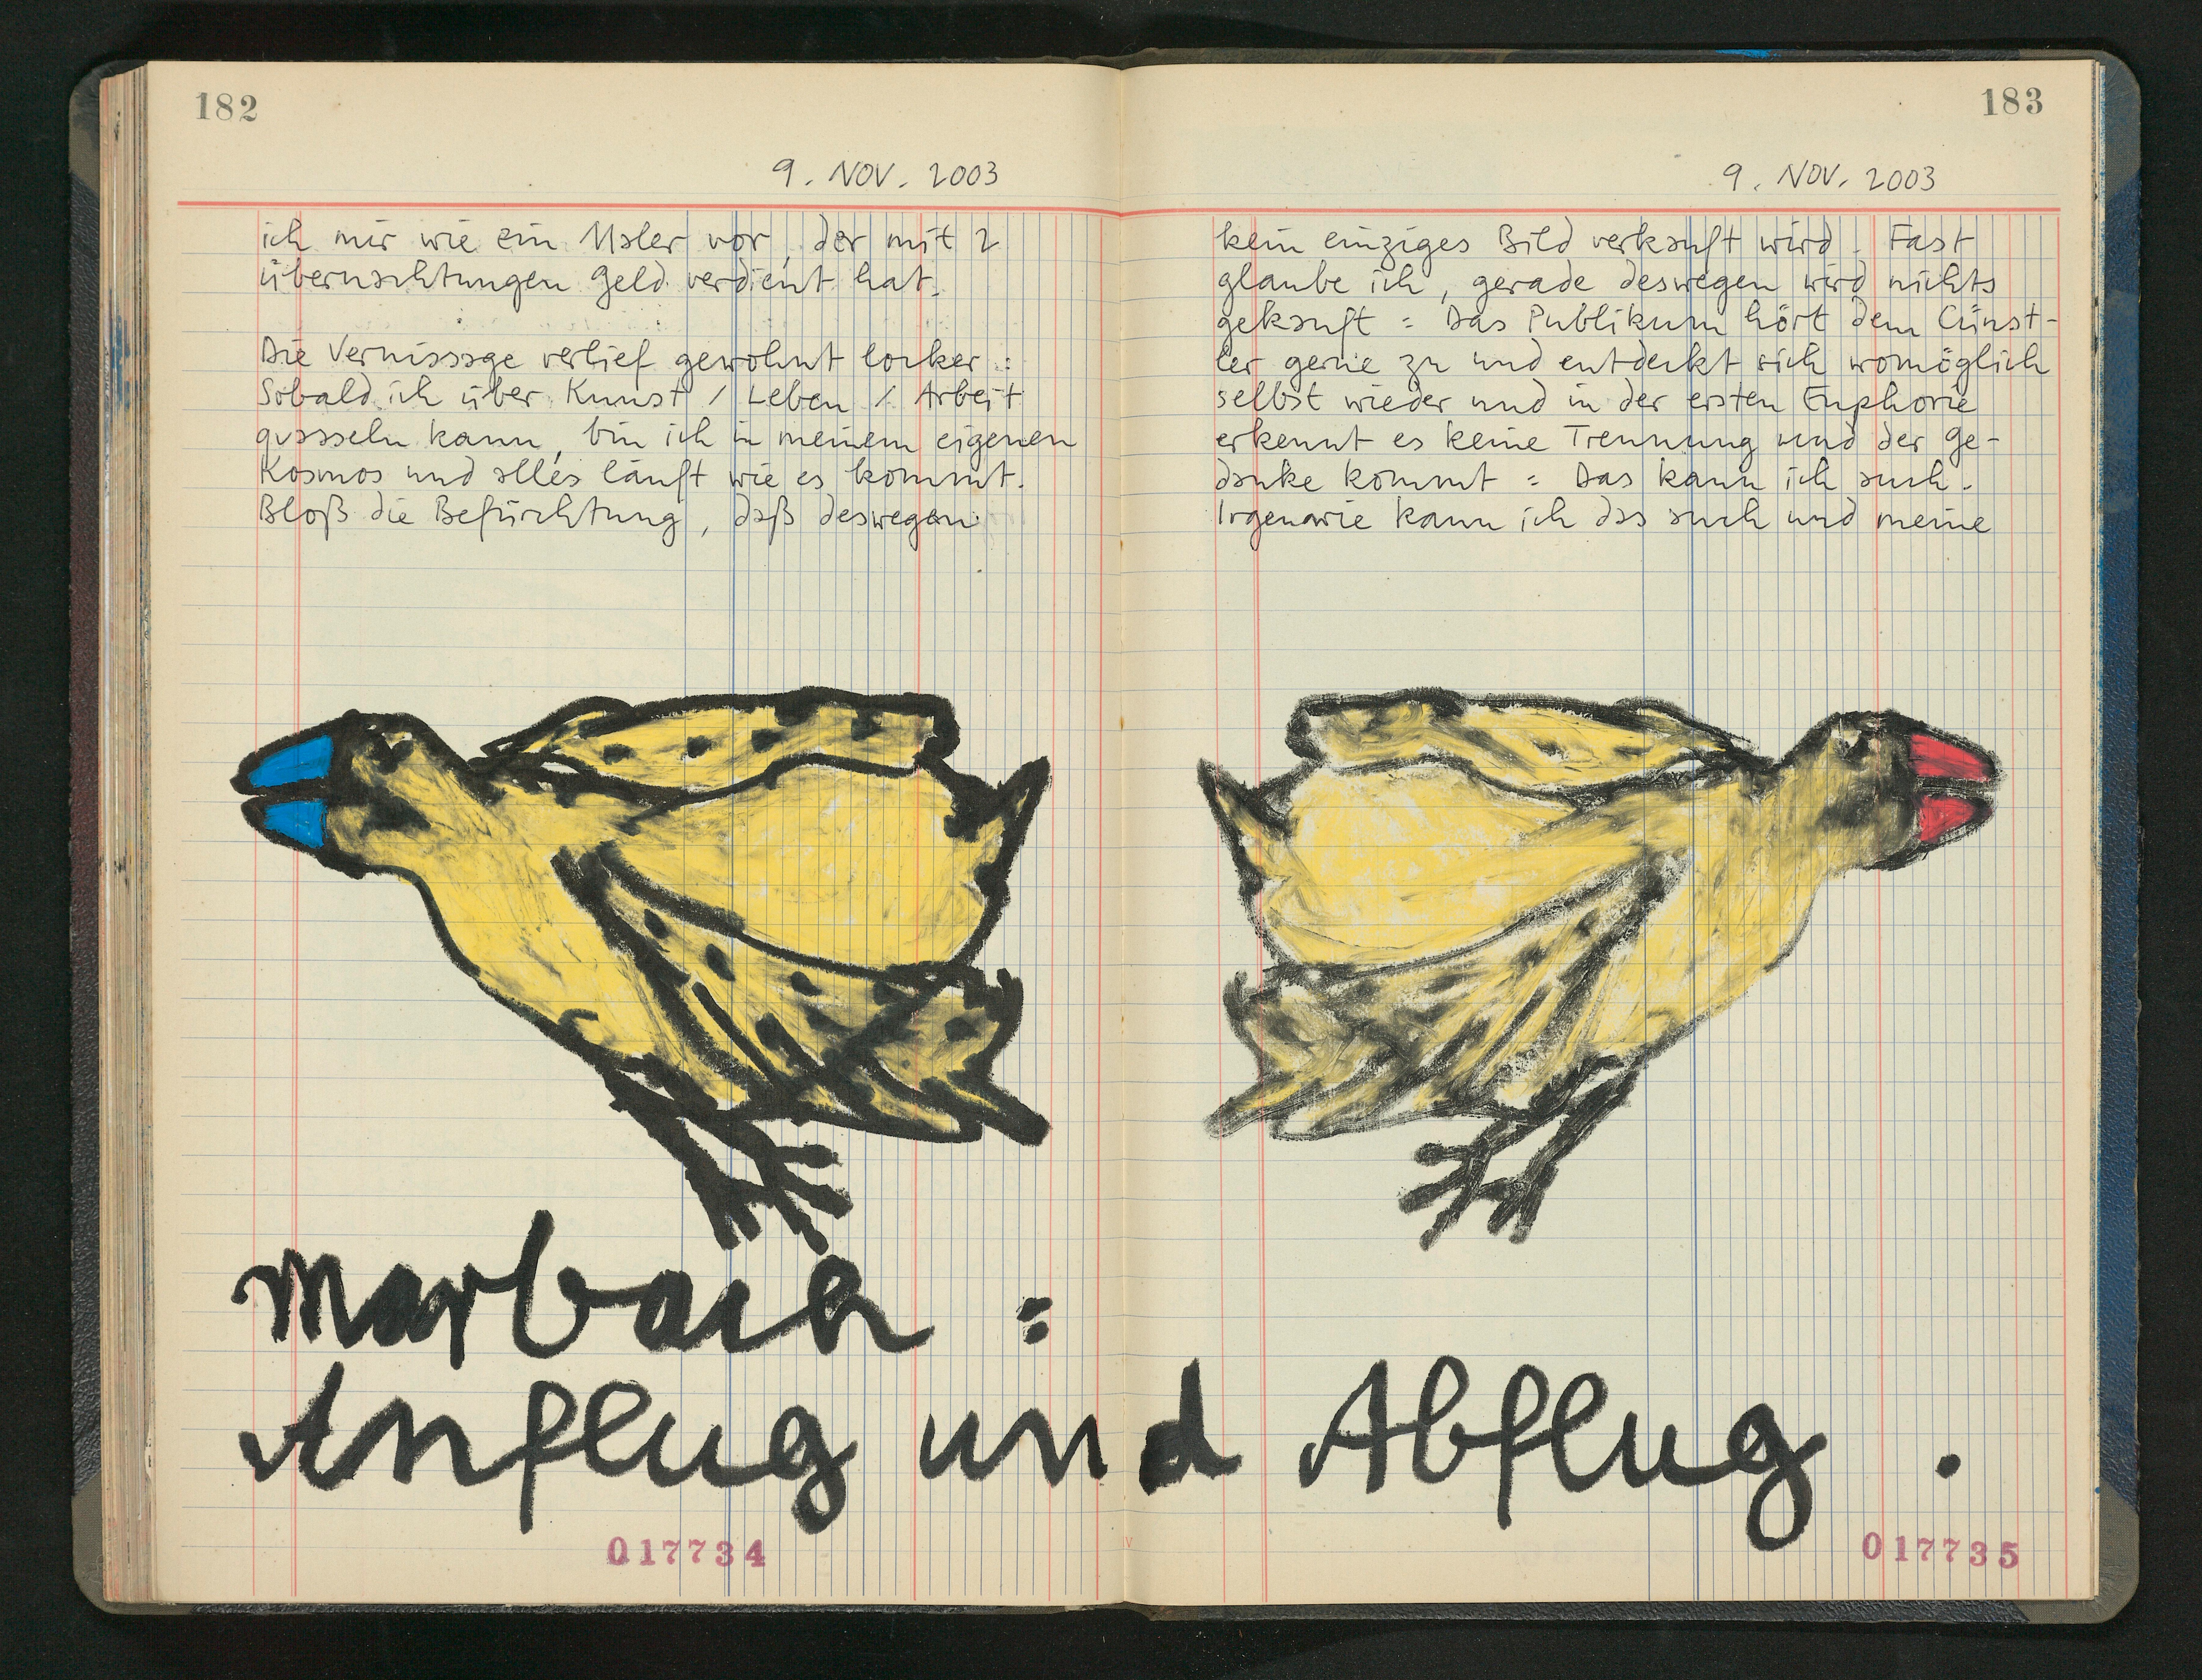 182
9. NOV. 2003
ich mir wie ein Maler vor, der mit 2
übernachtungen Geld verdient hat.
Die Vernissage verlief gewohnt locker :
Sobald ich über Kunst / Leben / Arbeit
quasseln kann, bin ich in meinem eigenen
Kosmos und alles läuft wie es kommt.
Bloß die Befürchtung, daß deswegen
Marbach :
Anflug und Abflug .
017734
183
9. NOV. 2003
kein einziges Bild verkauft wird. Fast
glaube ich, gerade deswegen wird nichts
gekauft : Das Publikum hört dem Cünst-
ler gerne zu und entdeckt sich womöglich
selbst wieder und in der ersten Euphorie
erkennt es keine Trennung und der Ge-
danke kommt : Das kann ich auch.
Irgenwie kann ich das auch und meine
017735